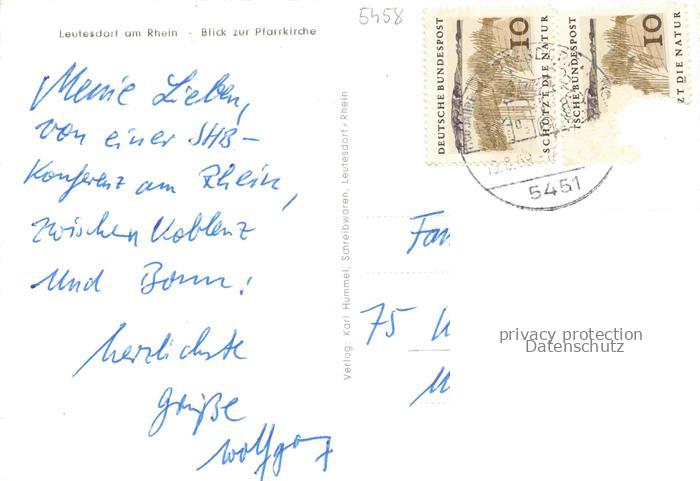 5458
Leutesdorf am Rhein - Blick zur Pfarrkirche
Meine Lieben,
von einer SHB-
Konferenz am Rhein,
zwischen Koblenz
und Bonn!
herzlichste
Grüße
Wolfgang
Verlag: Karl Hummel, Schreibwaren, Leutesdorf/Rhein
DEUTSCHE BUNDESPOST
10
SCHÜTZT DIE NATUR
TSCHE BUNDESPOST
10
ZT DIE NATUR
5451
Fam
75
privacy protection
Datenschutz